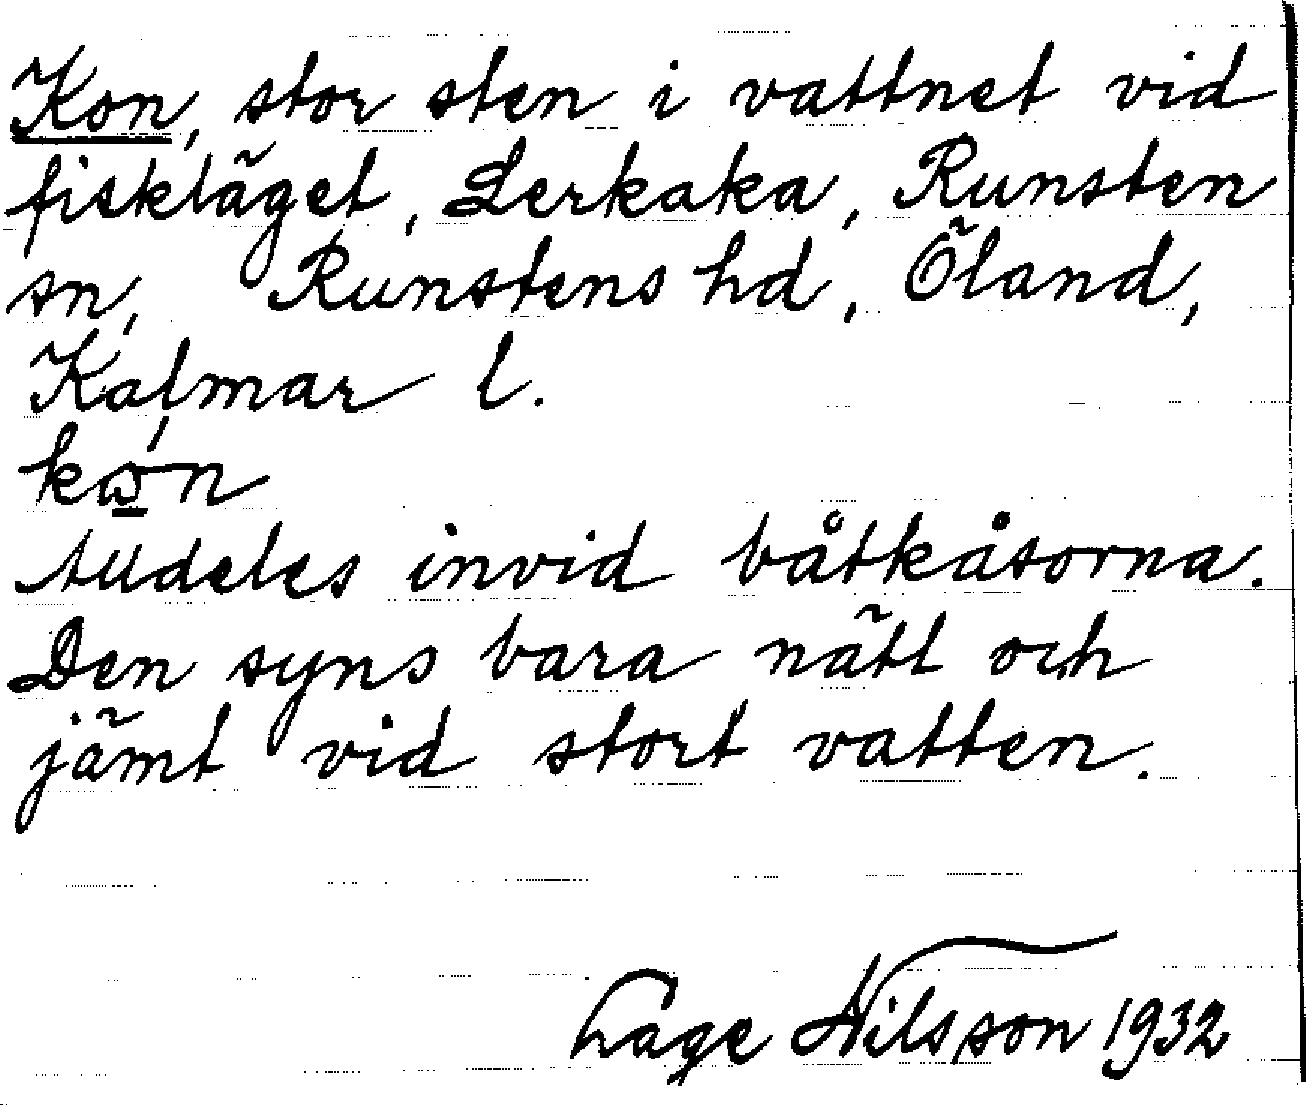 Kon, stor sten i vattnet vid
fiskläget, Lerkaka, Runsten
sn, Runstens hd, Öland,
Kalmar l.
Alldeles invid båtkåsorna.
Den syns bara nätt och
jämt vid stort vatten.
Lage Nilsson 1932